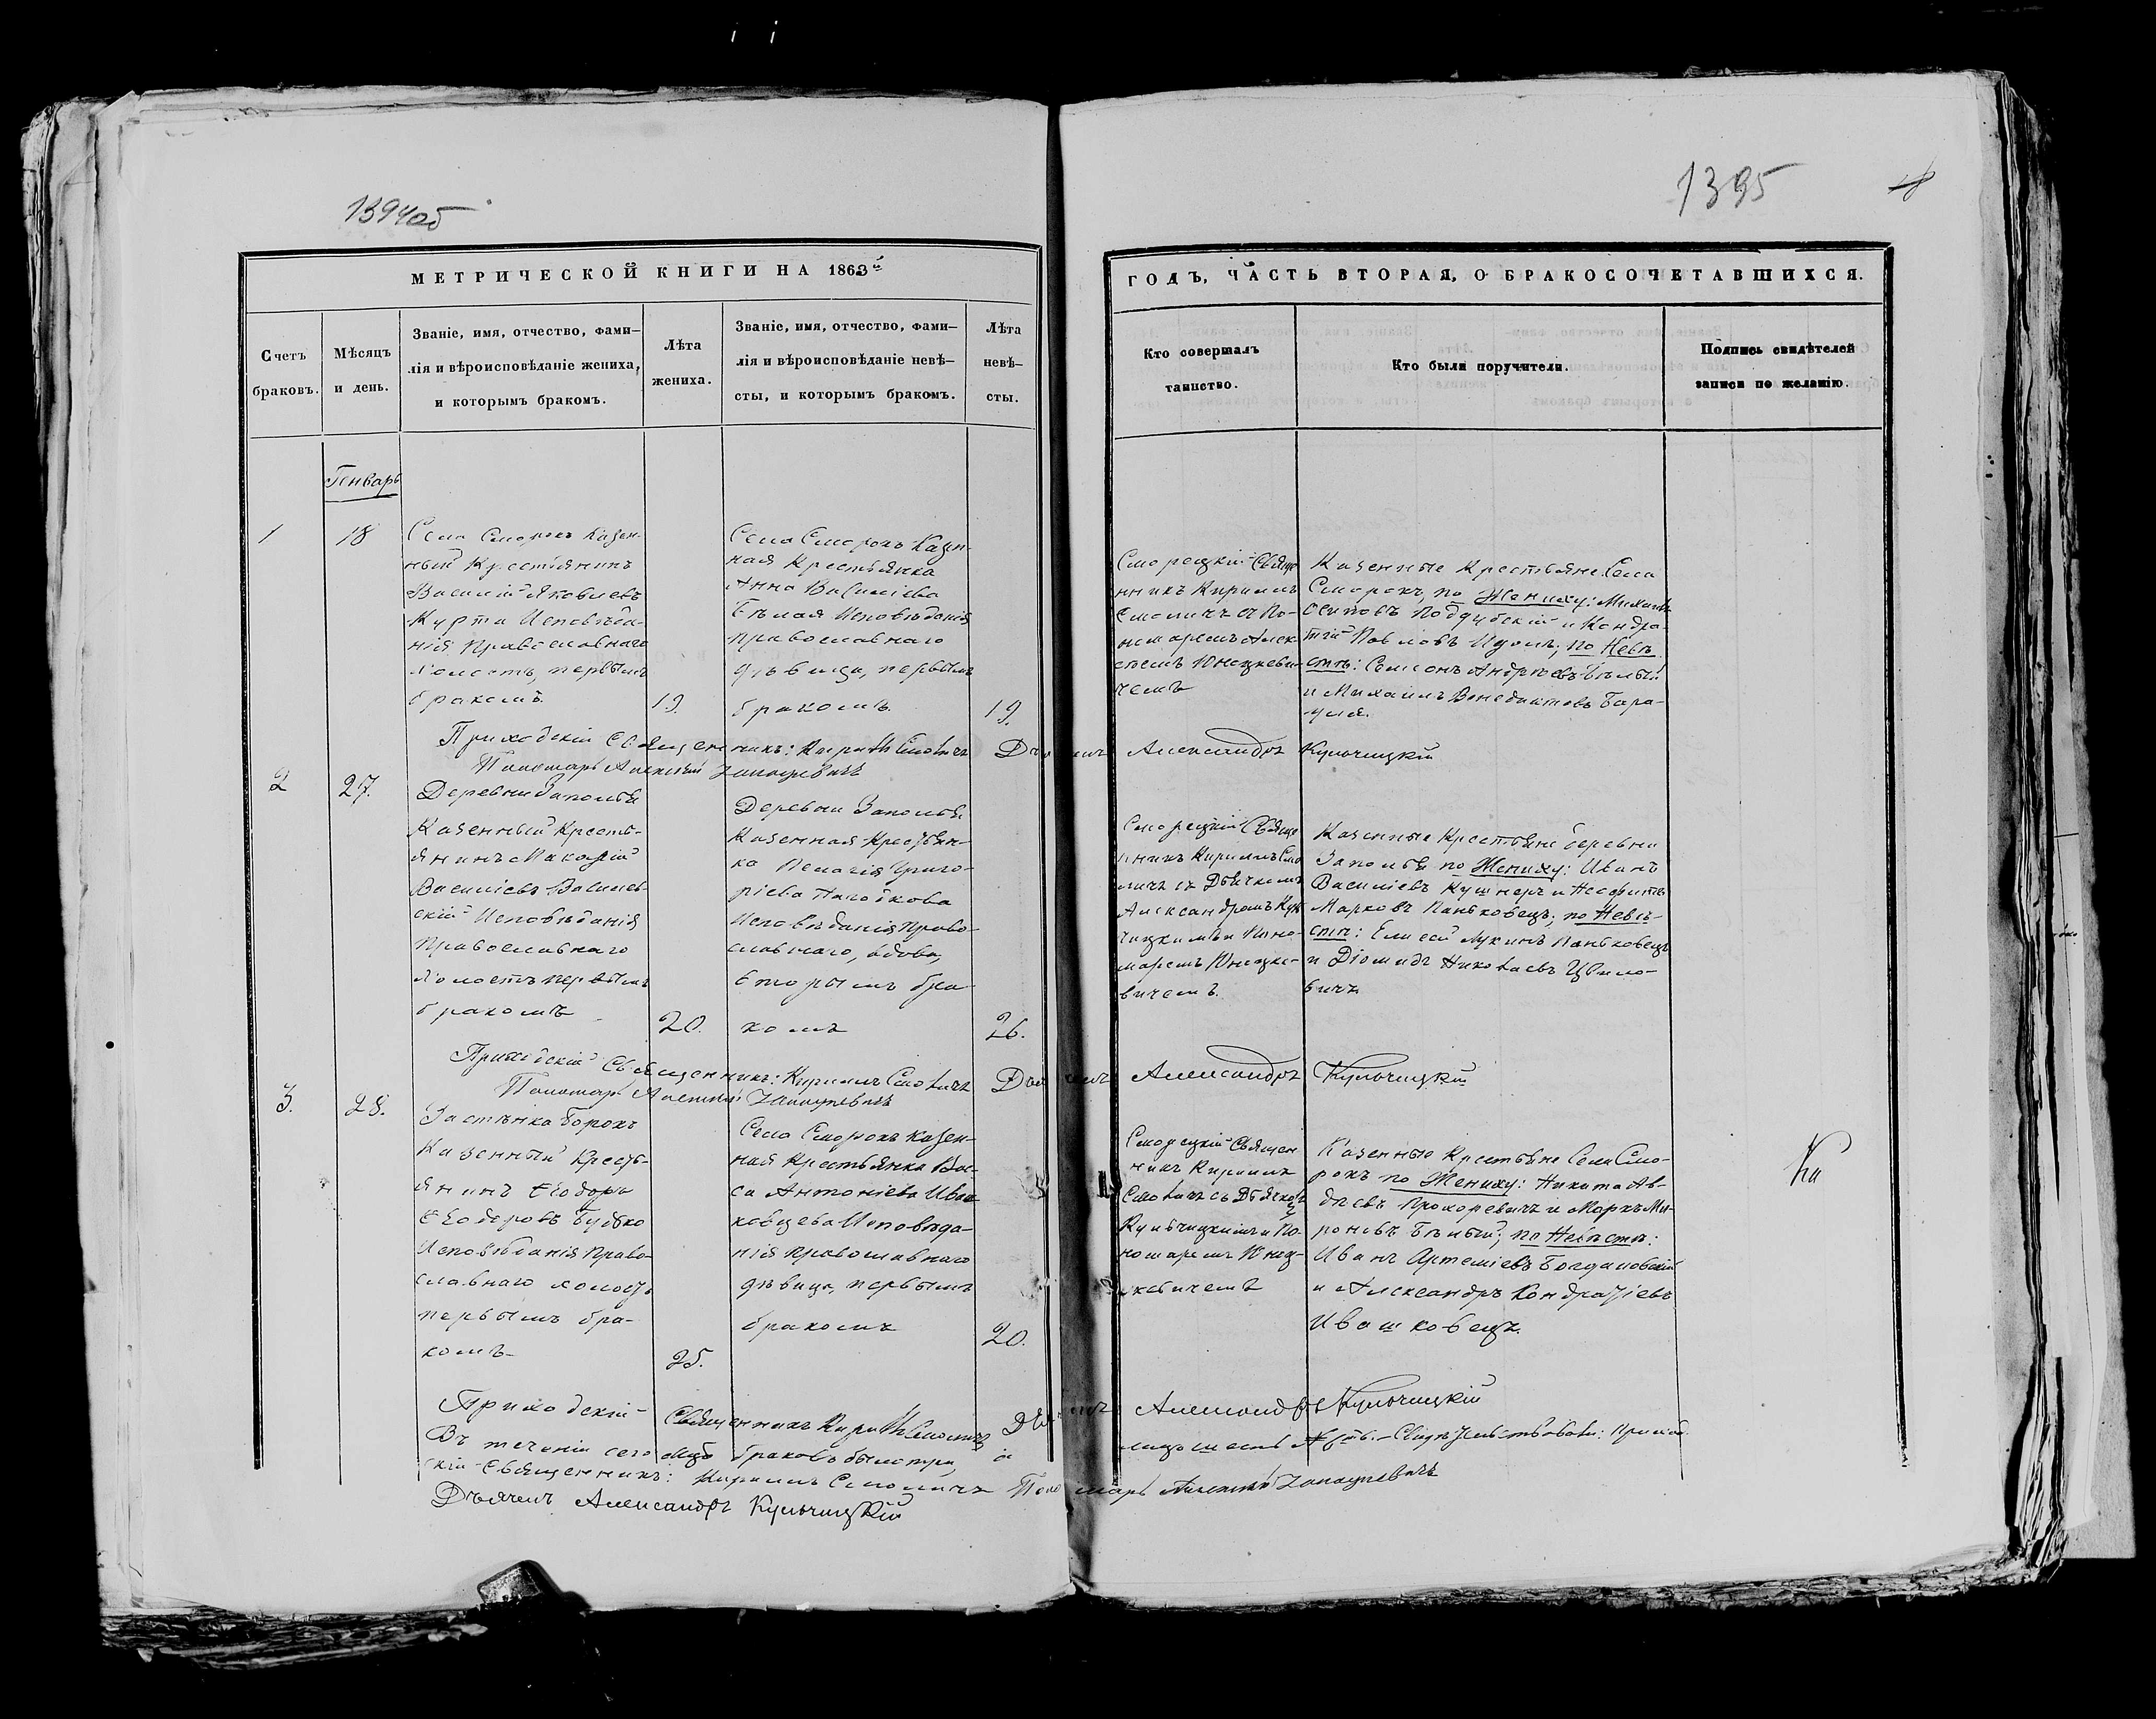 1394об
1395
МЕТРИЧЕСКОЙ КНИГИ НА 1863й
ГОДЪ, ЧАСТЬ ВТОРАЯ, О БРАКОСОЧЕТАВШИХСЯ.
Счетъ
браковъ.
Мѣсяцъ
и день.
Званіе, имя, отчество, фами-
лія и вѣроисповѣданіе жениха,
и которымъ бракомъ.
Лѣта
жениха.
Званіе, имя, отчество, фами-
лія и вѣроисповѣданіе невѣ-
сты, и которымъ бракомъ.
Лѣта
невѣ-
сты.
Кто совершалъ
таинство.
Кто были поручители.
Подпись свидѣтелей
записи по желанію.
Генварь
1
18
Села Сморокъ Казен-
ный Крестьянинъ
Василій Яковлевъ
Курта Исповѣда-
нія Православнаго
Холостъ, первымъ
бракомъ.
19.
Села Сморокъ Казен-
ная Крестьянка
Анна Василіева
Бѣлая Исповѣданія
православнаго
дѣвица, первымъ
бракомъ.
19.
Сморецкій Свяще
нникъ Кириллъ
Смоличъ съ По-
номаремъ Алек-
сѣемъ Юнацкеви-
чемъ
Казенные Крестьяне Села
Сморокъ, по Жениху: Михаилъ
Осиповъ Поддубскій и Кондра-
тій Павловъ; по Невѣ
стѣ: Самсонъ Андреевъ Бѣлый
и Михаилъ Венедиктовъ Бара-
нуля.
Приходскій Священникъ: Кириллъ Смоличъ
Дьячекъ Александръ Кульчицкій
Пономарь Алексѣй Юнацкевичъ
2
27.
Деревни Заполья
Казенный Кресть-
янинъ Макарій
Василіевъ Василев-
скій Исповѣданія
Православнаго
Холостъ первымъ
бракомъ
20.
Деревни Заполья
Казенная Крестьян-
ка Пелагія Григо-
ріева
Исповѣданія Право-
славнаго, вдова,
вторымъ бра-
комъ
26.
Сморецкій Свяще
нникъ Кириллъ Смо
личъ съ Дьячкомъ
Александромъ Куль
чицкимъ и Поно-
маремъ Юнацке-
вичемъ.
Казенные Крестьяне деревни
Заполья по Жениху: Иванъ
Василіевъ Кушнеръ и Неофитъ
Марковъ Паньковецъ; по Невѣ-
стѣ: Елисей Лукинъ Паньковецъ
и Діомидъ Николаевъ Цвило-
вичъ
Приходскій Священникъ: Кириллъ Смоличъ
Дьячекъ Александръ Кульчицкій
Пономарь Алексѣй Юнацкевичъ
3.
28.
Застѣнка Борокъ
Казенный Кресть-
янинъ Ѳеодоръ
Ѳеодоровъ Будько
Исповѣданія Право-
славнаго холостъ
первымъ бра-
комъ
25.
Села Сморокъ Казен-
ная Крестьянка Вас-
са Антоніева Ивaш
ковцева Исповѣда-
нія православнаго
дѣвица, первымъ
бракомъ
20.
Сморецкій Священ
никъ Кириллъ
Смоличъ съ Дьячкомъ
Кульчицкимъ и По-
номаремъ Юнац-
кевичемъ
Казенные Крестьяне Села Смо-
рокъ по Жениху: Никита Ав-
дѣевъ Прохоревичъ и Маркъ Ми-
роновъ Бѣлый; по Невѣстѣ:
Иванъ Артеміевъ Богдановскій
и Александръ Кондратіевъ
Ивашковецъ.
Приходскій Священникъ Кириллъ Смоличъ
Дьячекъ Александръ Кульчицкій
Въ теченіи сего мѣс. браковъ было три, а
лицъ шесть. Свидѣтельствовали: Приход
скій Священникъ: Кириллъ Смоличъ Пономарь Алексѣй Юнацкевичъ
Дьячекъ Александръ Кульчицкій